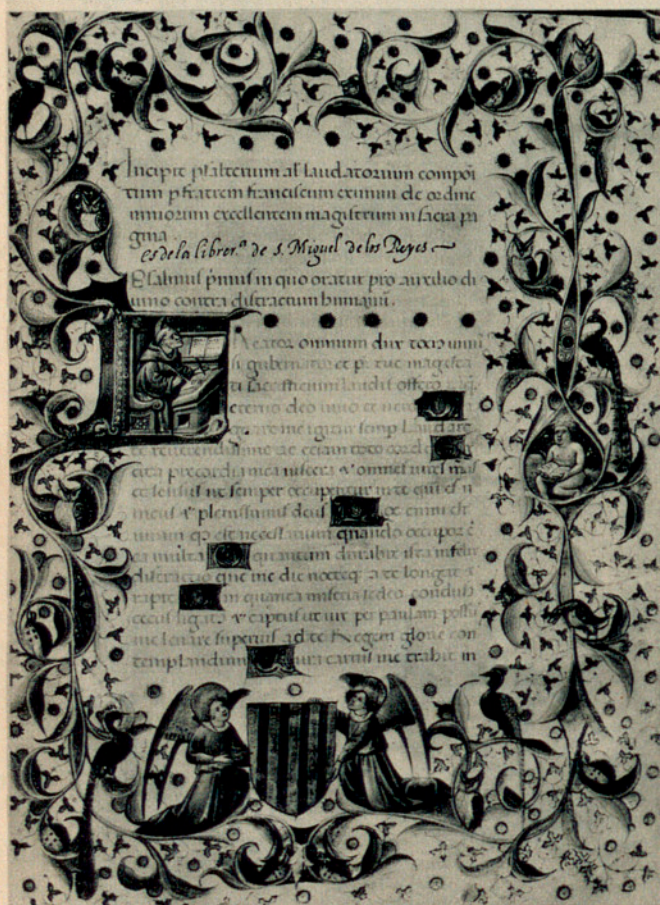 Incipit psalterium al' laudatorium compoi
tum p fratrem franciscum eximini de ordine
minorum excellentem magistrum in sacra pa
gina
es de la librer.ª de S. Miguel de los Reyes
Psalmus pmus in quo oratur pro auxilio di
uino contra distractum humanū.
Reator omnium dux tocius
gubernator et tue
laudis offero
eterno deo uino et
me igitur semp laudare
te reuerendissime ac etiam toto corde
precordia mea uiscera omnes uires
et sensus ut semper occupentur in te qui es
meus plenissimus deus enim est
necessarium quando
multa quantum durabit ista infelix
distractio que me die nocteq a te longat
rapit in quanta miseria sedeo
cecus ligatus captus ut uix per paulam possū
me leuare superius ad te Regem glorie con
templandum cura carnis me trahit in